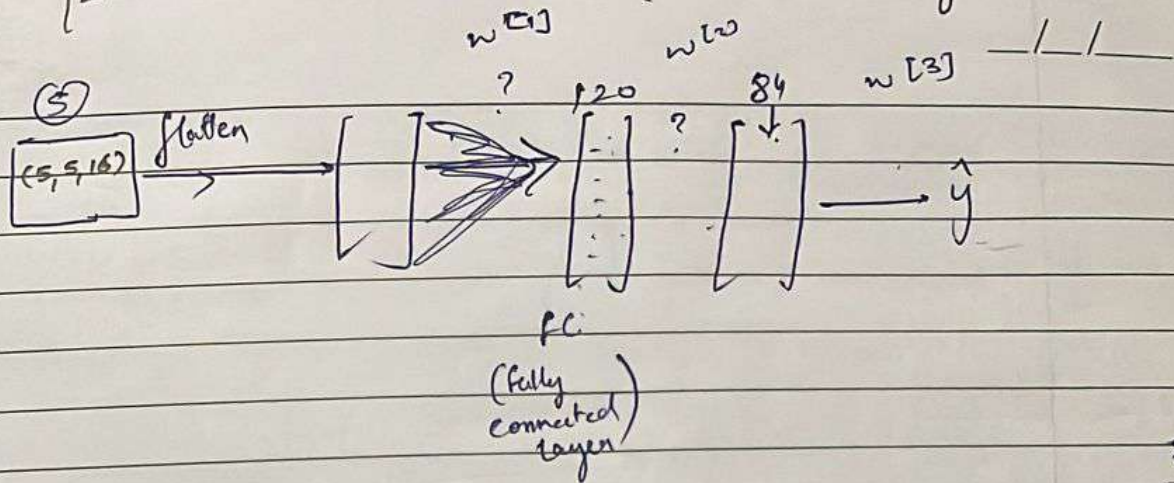 w[1] w[2] w[3] __/__/__
? 120 ? 84
5
(5,5,16) flatten ŷ
FC
(fully
connected
layer)